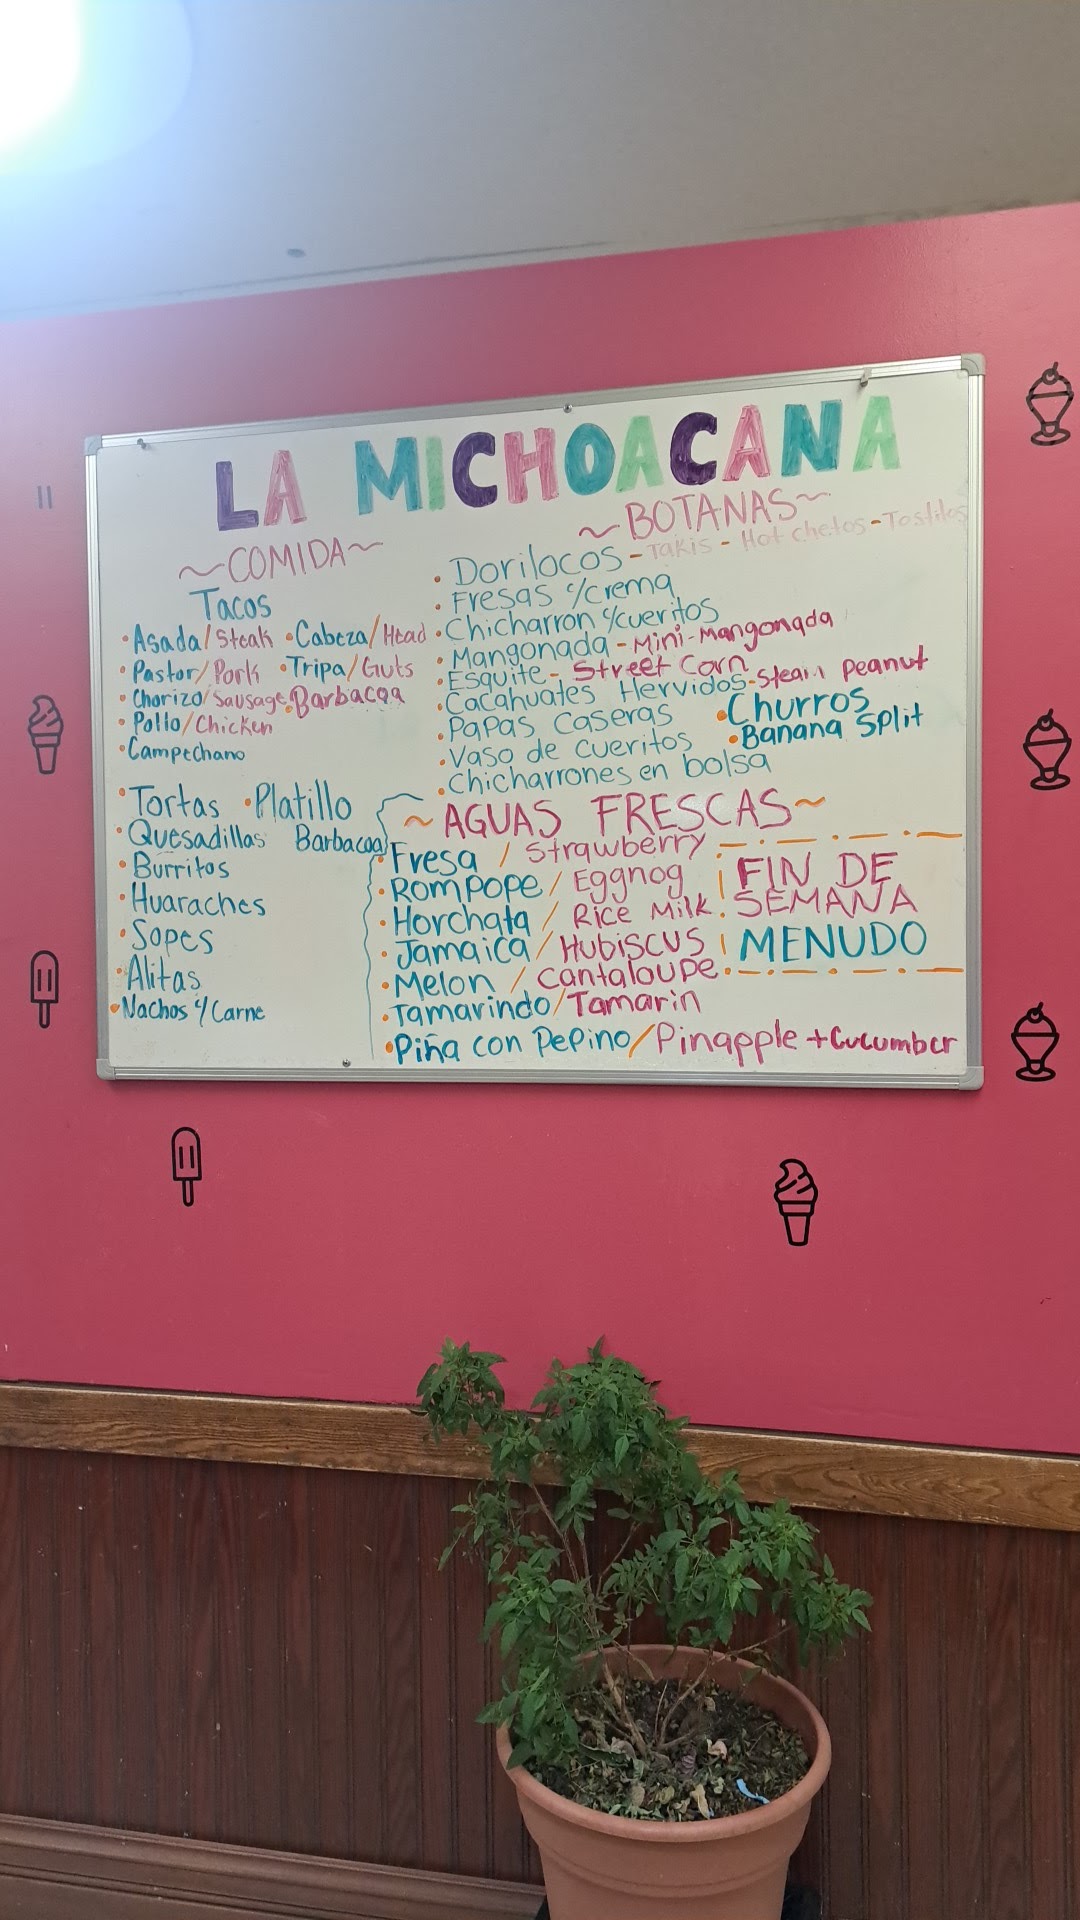 LA MICHOACANA
~COMIDA~
Tacos
•Asada/Steak •Cabeza/Head
•Pastor/Pork •Tripa/Guts
•Chorizo/Sausage •Barbacoa
•Pollo/Chicken
•Campechano
•Tortas •Platillo
•Quesadillas Barbacoa
•Burritos
•Huaraches
•Sopes
•Alitas
•Nachos c/Carne
~BOTANAS~
•Dorilocos - Takis - Hot chetos - Tostitos
•Fresas c/crema
•Chicharron c/cueritos
•Mangonada - Mini-Mangonada
•Esquite - Street Corn
•Cacahuates Hervidos - Steam Peanut
•Papas Caseras •Churros
•Vaso de cueritos •Banana Split
•Chicharrones en bolsa
~AGUAS FRESCAS~
•Fresa / Strawberry
•Rompope / Eggnog
•Horchata / Rice Milk
•Jamaica / Hubiscus
•Melon / Cantaloupe
•Tamarindo/Tamarin
•Piña con Pepino/Pinapple + Cucumber
FIN DE
SEMANA
MENUDO